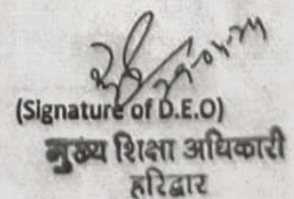 (Signature of D.E.O)
मुख्य शिक्षा अधिकारी
हरिद्वार